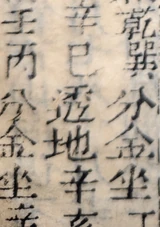 乾巽分金坐丁
辛巳透地辛亥
壬丙分金坐辛